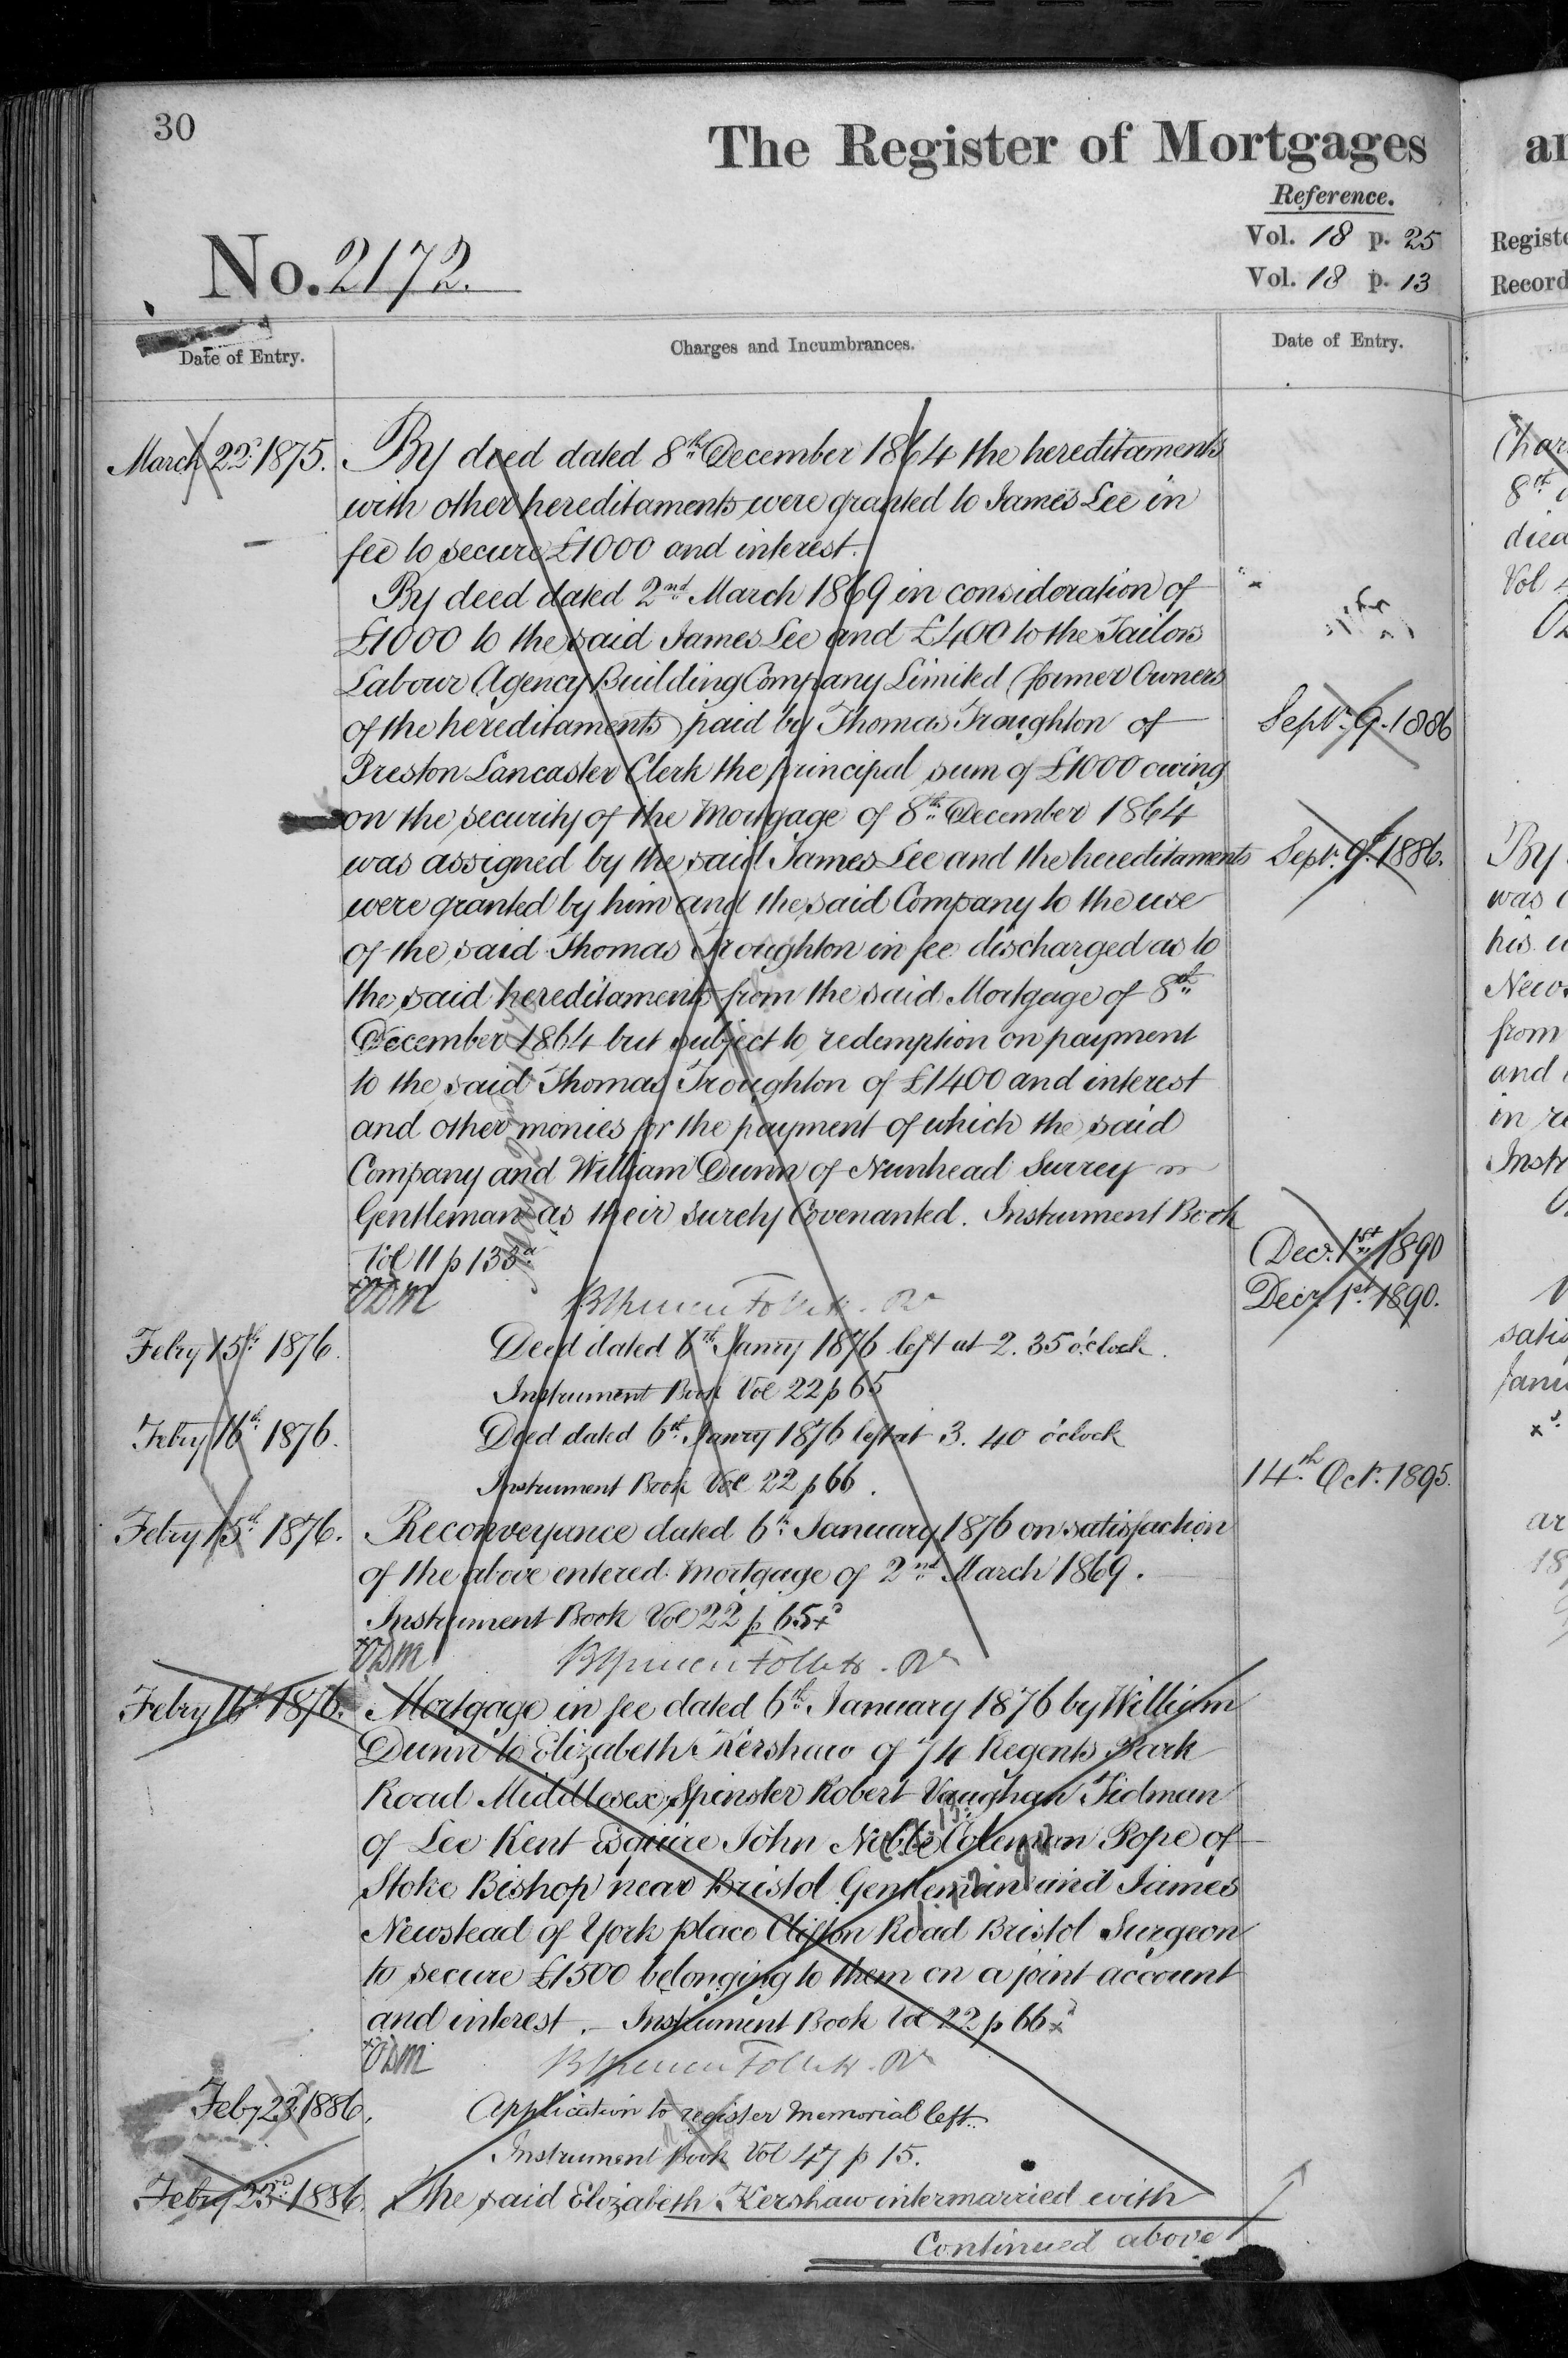 30
The Register of Mortgages
Reference.
Vol. 18 p. 25
Vol. 18 p. 13
No. 2172.
Date of Entry.
Charges and Incumbrances.
Date of Entry.
March 22nd 1875.
By deed dated 8th December 1864 the hereditaments
with other hereditaments were granted to James Lee in
fee to secure £1000 and interest.
By deed dated 2nd March 1869 in consideration of
£1000 to the said James Lee and £400 to the Tailors
Labour Agency Building Company Limited (former Owners
of the hereditaments) paid by Thomas Troughton of
Preston Lancaster Clerk the principal sum of £1000 owing
on the security of the Mortgage of 8th December 1864
was assigned by the said James Lee and the hereditaments
were granted by him and the said Company to the use
of the said Thomas Troughton in fee discharged as to
the said hereditaments from the said Mortgage of 8th
December 1864 but subject to redemption on payment
to the said Thomas Troughton of £1400 and interest
and other monies for the payment of which the said
Company and William Dunn of Nunhead Surrey
Gentleman as their surety Covenanted. Instrument Book
Vol 11 p 133
Febry 15th 1876.
Deed dated 6th Janry 1876 left at 2. 35 o'clock.
Instrument Book Vol 22 p 65
Febry 16th 1876.
Deed dated 6th Janry 1876 left at 3. 40 o'clock
Instrument Book Vol 22 p 66.
Febry 15th 1876.
Reconveyance dated 6th January 1876 on satisfaction
of the above entered mortgage of 2nd March 1869.
Instrument Book Vol 22 p 65
Febry 16th 1876.
Mortgage in fee dated 6th January 1876 by William
Dunn to Elizabeth Kershaw of 74 Regents Park
Road Middlesex Spinster Robert Vaughan Tidman
of Lee Kent Esquire John Noble Coleman Pope of
Stoke Bishop near Bristol Gentleman and James
Newstead of York place Clifton Road Bristol Surgeon
to secure £1500 belonging to them on a joint account
and interest. Instrument Book Vol 22 p 66
Feby 23d 1886.
Application to register Memorial left.
Instrument Book Vol 47 p 15.
Febry 23rd 1886.
The said Elizabeth Kershaw intermarried with
Continued above
Septr. 9. 1886
Septr. 9th 1886.
Decr. 1st 1890
Decr. 1st 1890.
14th Octr. 1895.